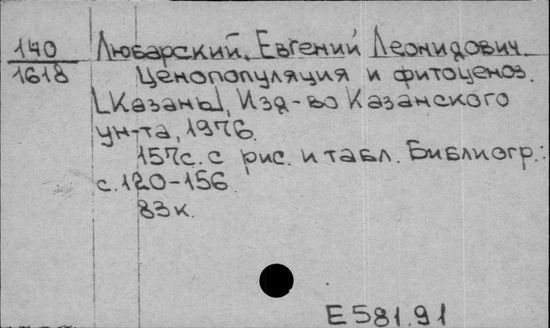 140 Любарский, Евгений Леонидович.
1618 Ценопопуляция и фитоценоз.
[Казань], Изд-во Казанского
ун-та, 1976.
157с. с рис. и табл. Библиогр.:
с.120-156.
83к.
Е581.91